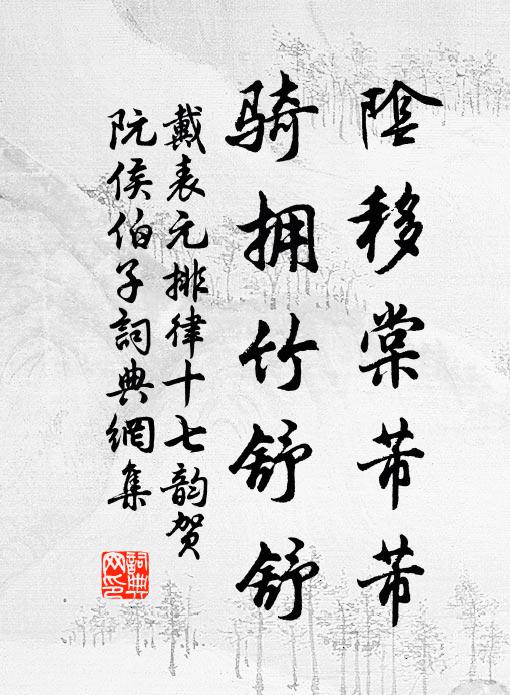 陰移棠芾芾
騎拥竹舒舒
戴表元排律十七韵贺
阮侯伯子詞典網集
詞典网印